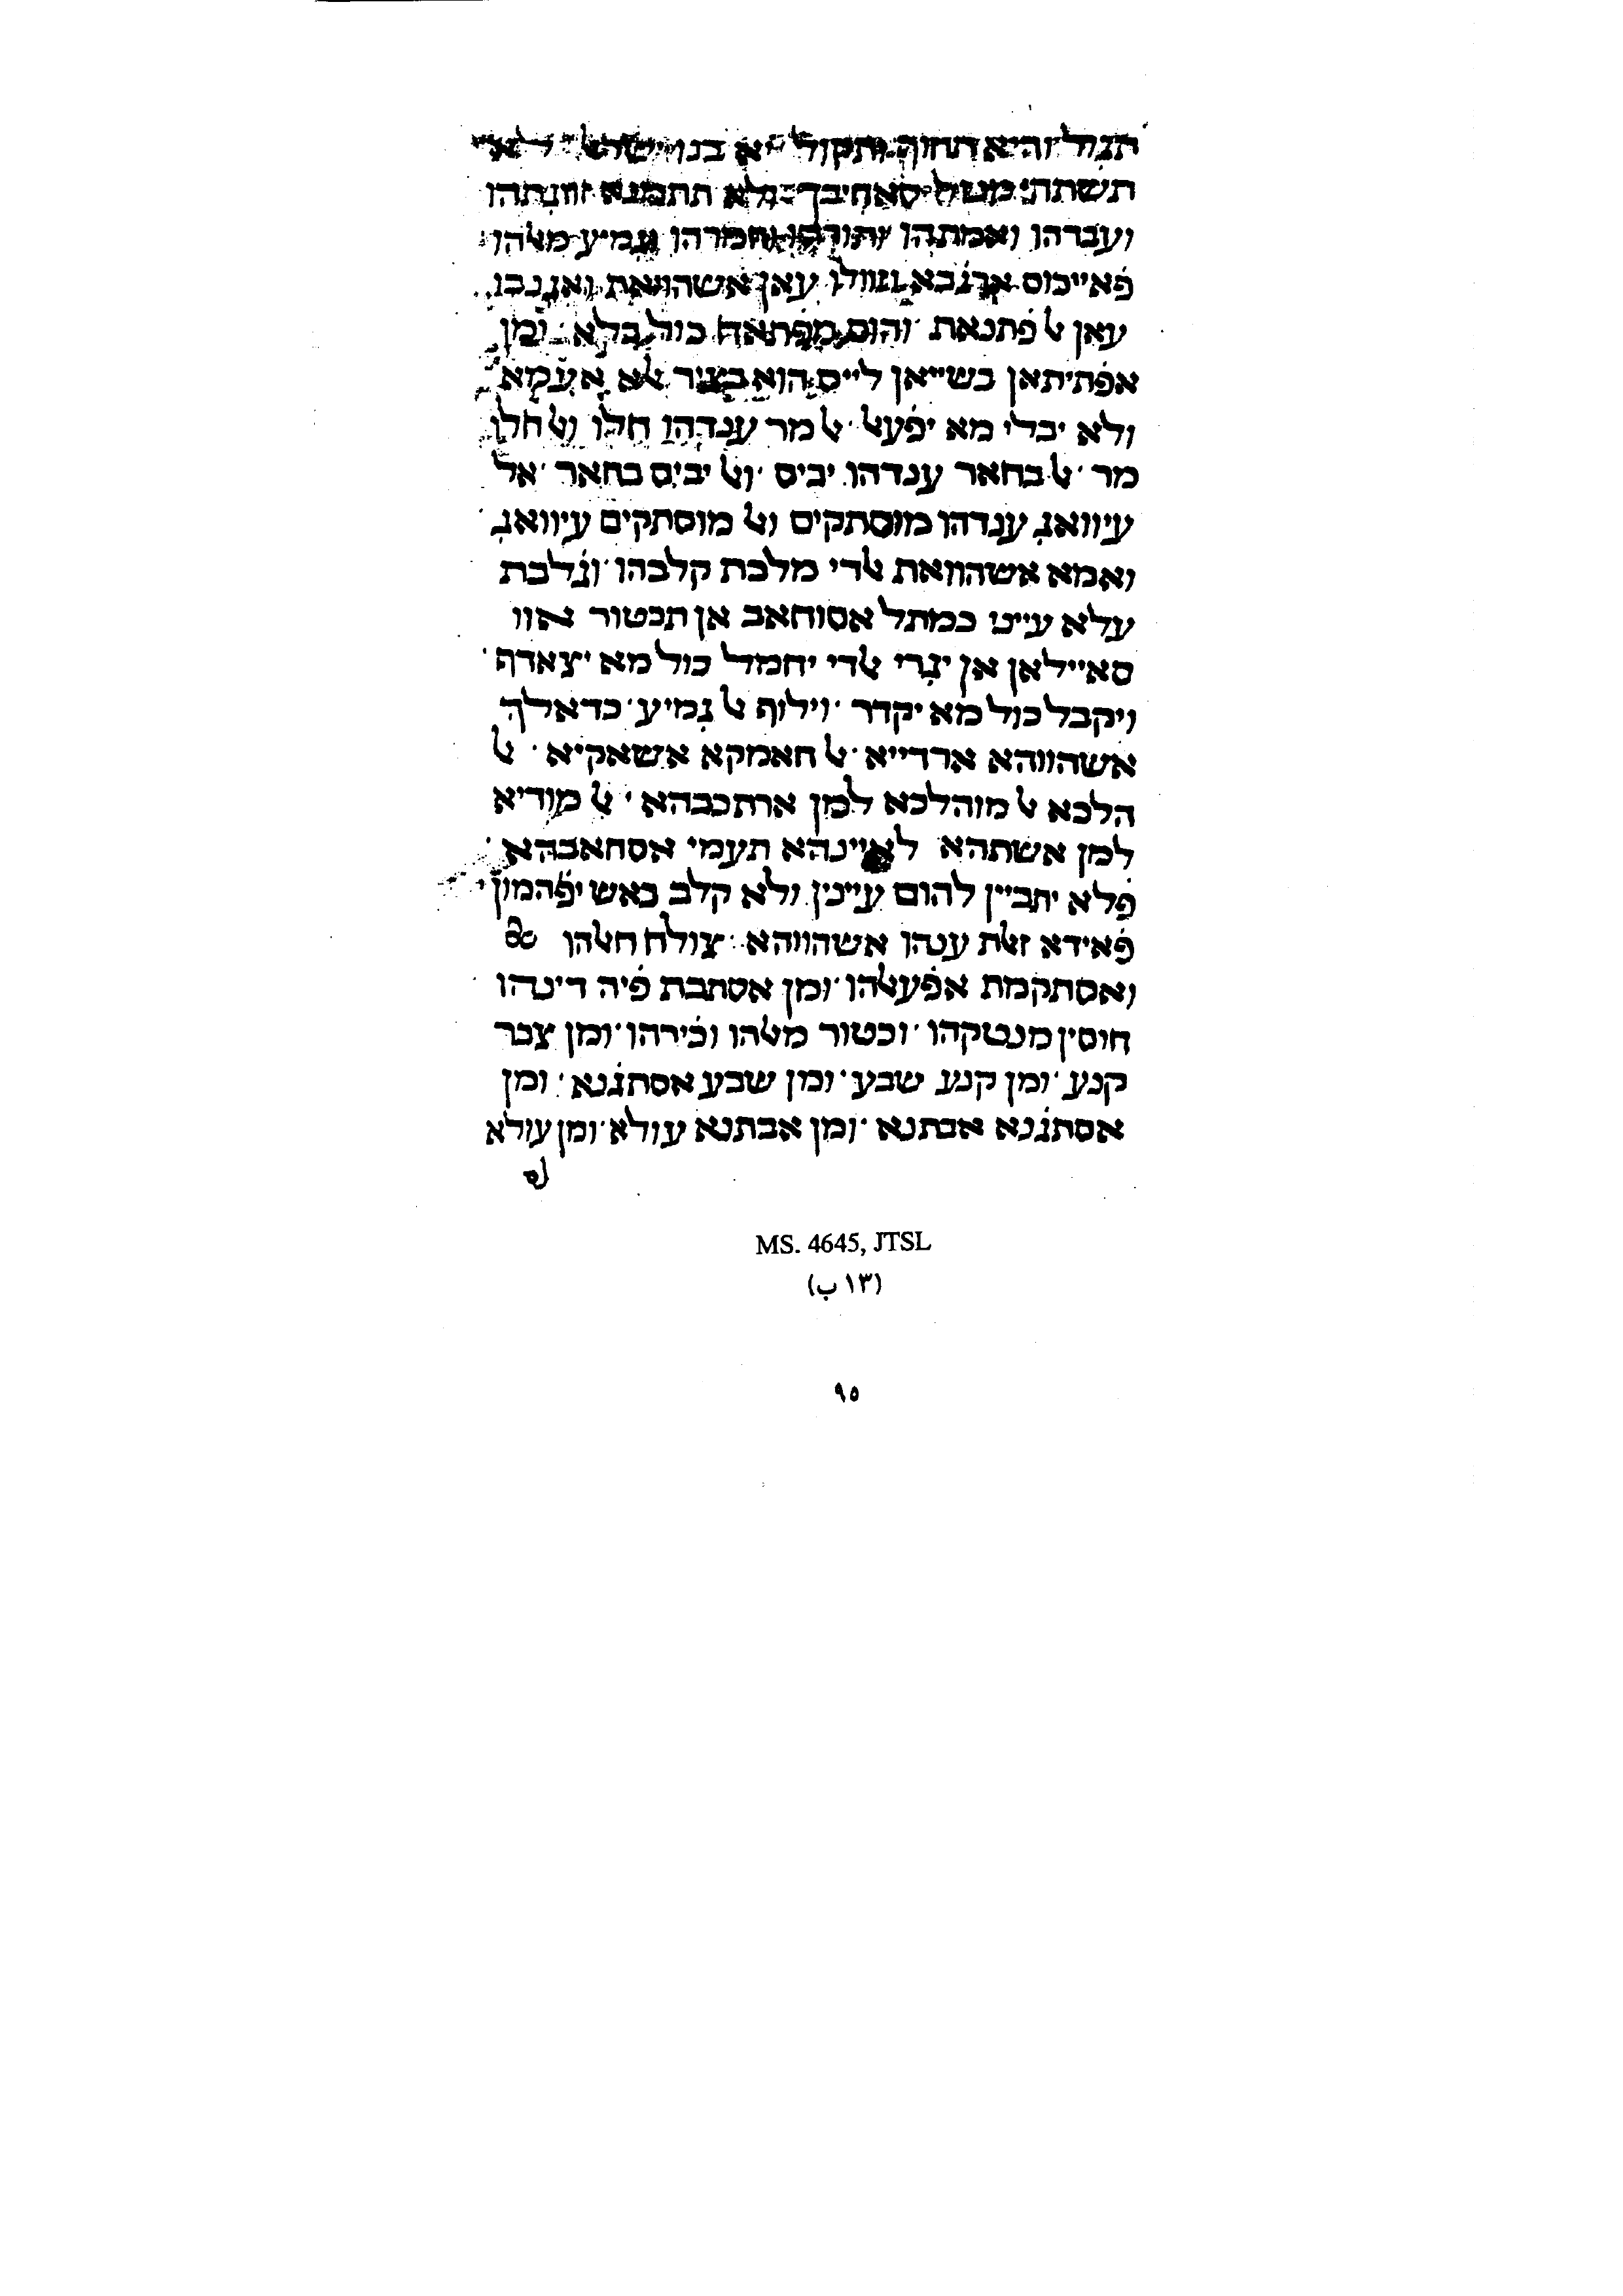 תגול והיא תחוף ותקול יא בנו ישראל לא
תשתהי מטל סאחיבך ולא תתמנא זוגתהו
ועבדהו ואמתהו ותורהו וחמרהו גמיע מאלהו
פאייכום ארגבא וזוולו עאן אשהוואת ואגנבו
עאן אל פתנאת והום מפתאח כול בלא ומן
אפתיתאן בשייאן לייס הוא בציר אלא אעמא
ולא יבלי מא יפעאל אל מר ענדהו חלו ואל חלו
מר אל בחאר ענדהו יביס ואל יביס בחאר אל
עיוואג ענדהו מוסתקים ואל מוסתקים עיוואג
ואמא אשהוואת אלדי מלכת קלבהו וגלבת
עלא עייני כמתל אסוחאב אן תכטור אוו
סאיילאן אן יגרי אלדי יחמל כול מא יצאדף
ויקבל כול מא יקדר וילוף אל גמיע כדאלך
אשהווהא ארדייא אל חאמקא אשאקיא אל
הלכא אל מוהלכא למן ארתכבהא אל מודיא
למן אשתהא לאיינהא תעמי אסחאבהא
פלא יתביין להום עיינין ולא קלב באש יפהמון
פאידא זאלת ענהו אשהווהא צולח חאלהו
ואסתקמת אפעאלהו ומן אסתבת פיה דינהו
חוסין מנטקהו וכטור מאלהו וכירהו ומן צבר
קנע ומן קנע שבע ומן שבע אסתגנא ומן
אסתגנא אבתנא ומן אבתנא עולא ומן עולא
MS. 4645, JTSL
(١٣ب)
٩٥